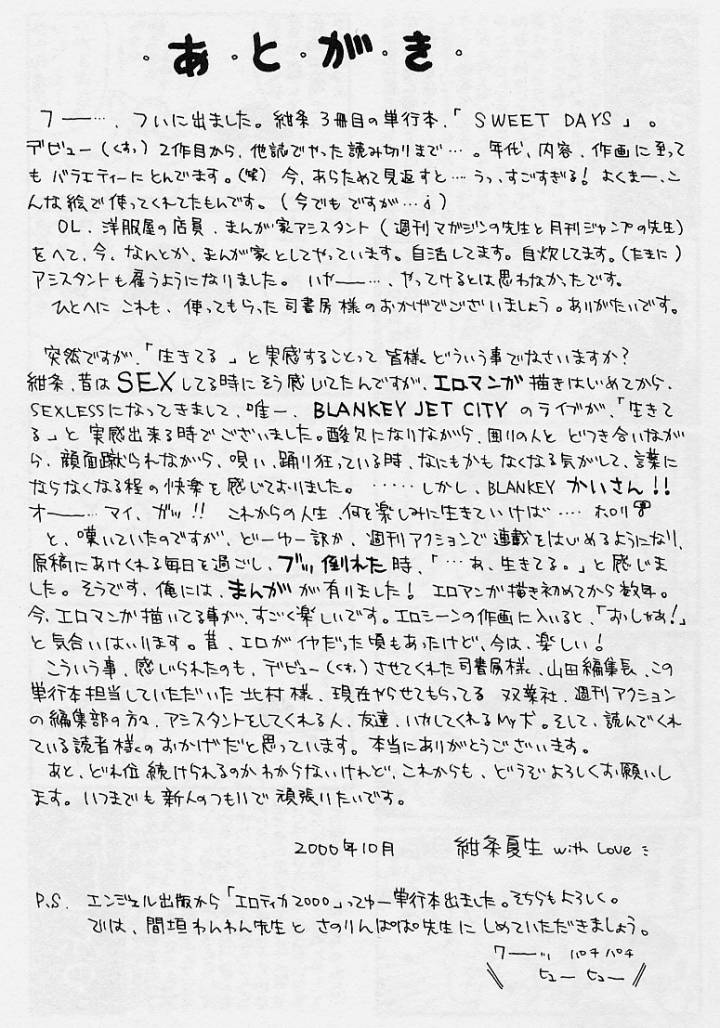 ・あ・と・が・き・
フー…、ついに出ました。紺条3冊目の単行本、「SWEET DAYS」。
デビュー(くすっ)2作目から、他誌でやった読み切りまで…。年代、内容、作画に至って
も バラエティーにとんでます。(笑) 今、あらためて見返すと…うっ、すごすぎる! よくまー、こ
んな絵で使ってくれてたもんです。(今でもですが…;)
OL、洋服屋の店員、まんが家アシスタント(週刊マガジンの先生と月刊ジャンプの先生)
をへて、今、なんとか、まんが家としてやっています。自活してます。自炊してます。(たまに)
アシスタントも雇うようになりました。いやー…、やってけるとは思わなかったです。
ひとへに これも、使ってもらった司書房様のおかげでございましょう。ありがたいです。
突然ですが、「生きてる」と実感することって 皆様、どういう事でなさいますか?
紺条、昔はSEXしてる時にそう感じてたんですが、エロマンガ描きはじめてから、
SEXLESSになってきまして、唯一、BLANKEY JET CITY のライブが、「生きて
る」と 実感出来る時でございました。酸欠になりながら、囲りの人と どつき合いなが
ら、顔面蹴られながら、唄い、踊り狂っている時、なにもかも なくなる気がして、言葉に
ならなくなる程の快楽を感じておりました。……しかし、BLANKEY かいさん!!
オー…マイ、ガッ!! これからの人生、何を楽しみに生きていけば…… ホロリ
と、嘆いていたのですが、どーゆー訳か、週刊アクションで連載をはじめるようになり、
原稿にあけくれる毎日を過ごし、ブッ倒れた時、「…あ、生きてる。」と感じま
した。そうです、俺には、まんがが有りました! エロマンガ描き初めてから数年。
今、エロマンガ描いてる事が、すごく楽しいです。エロシーンの作画に入いると、「おっしゃあ!」
と気合いはいります。昔、エロがイヤだった頃もあったけど、今は、楽しい!
こういう事、感じられたのも、デビュー(くすっ)させてくれた司書房様、山田編集長、この
単行本担当していただいた 北村様、現在やらせてもらってる 双葉社、週刊アクション
の編集部の方々、アシスタントをしてくれる人、友達、いかしてくれるMy犬。そして、読んでくれ
ている読者様のおかげだと思っています。本当にありがとうございます。
あと、どれ位続けられるのかわからないけれど、これからも、どうぞよろしくお願いし
ます。いつまでも新人のつもりで頑張りたいです。
2000年10月 紺条夏生 with Love
P.S. エンジェル出版から「エロティカ2000」ってゆー単行本出ました。そちらもよろしく。
では、間垣わんわん先生と さのりんぱぱ先生に しめていただきましょう。
ワーッ パチパチ
ヒューヒュー